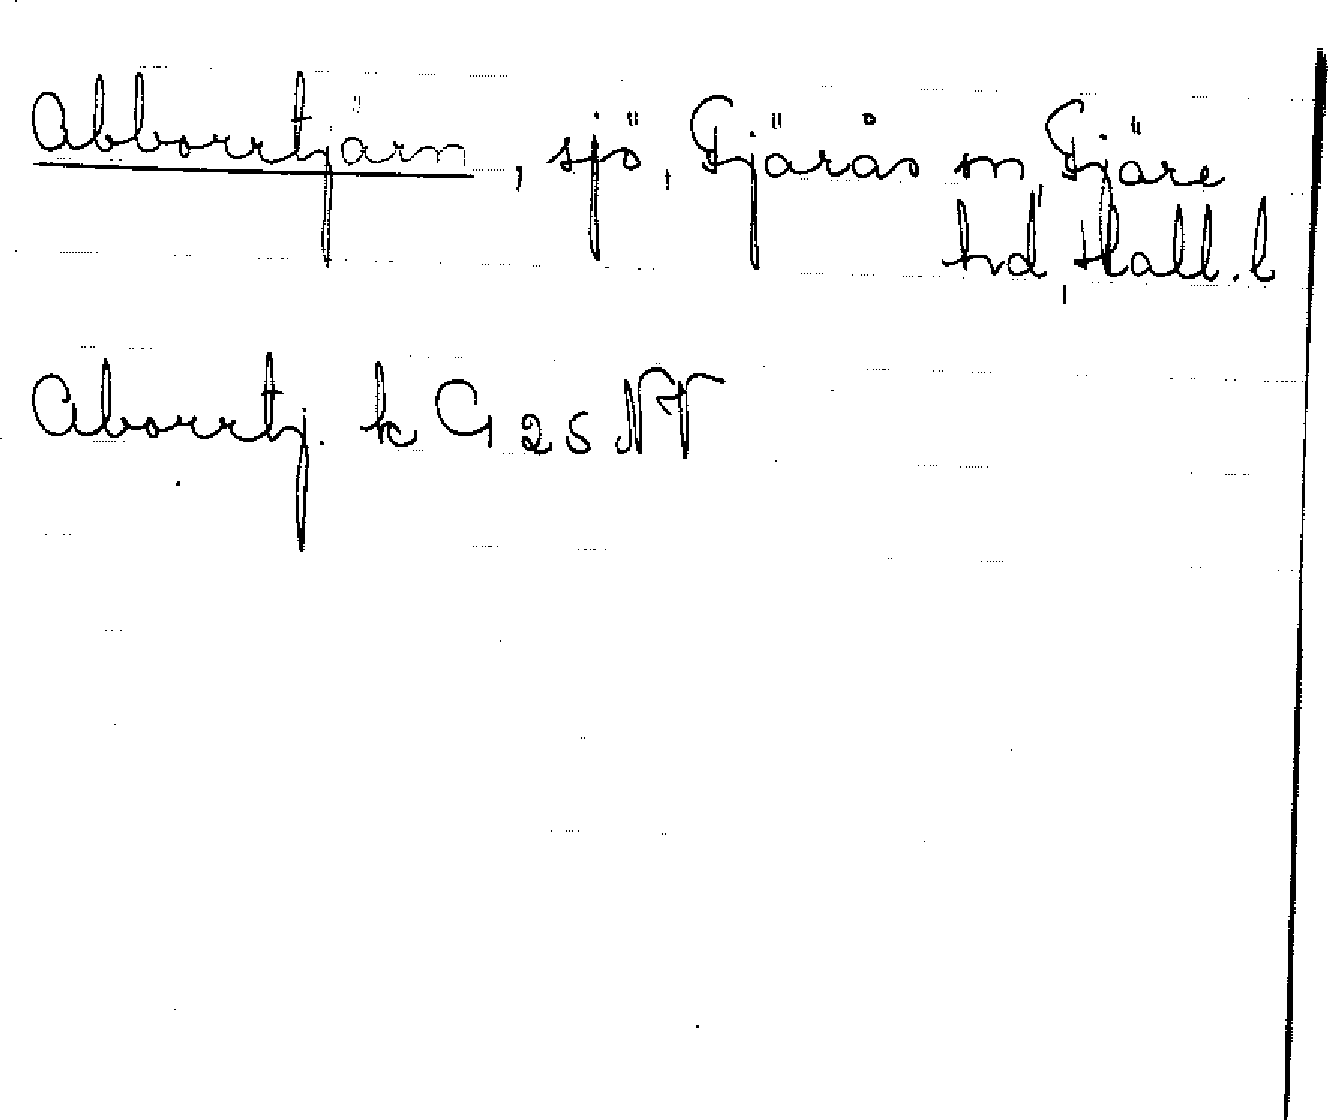 Abborrtjärn, sjö, Fjärås sn, Fjäre
hd, Hall. l
Aborrtj. k G 25 NV